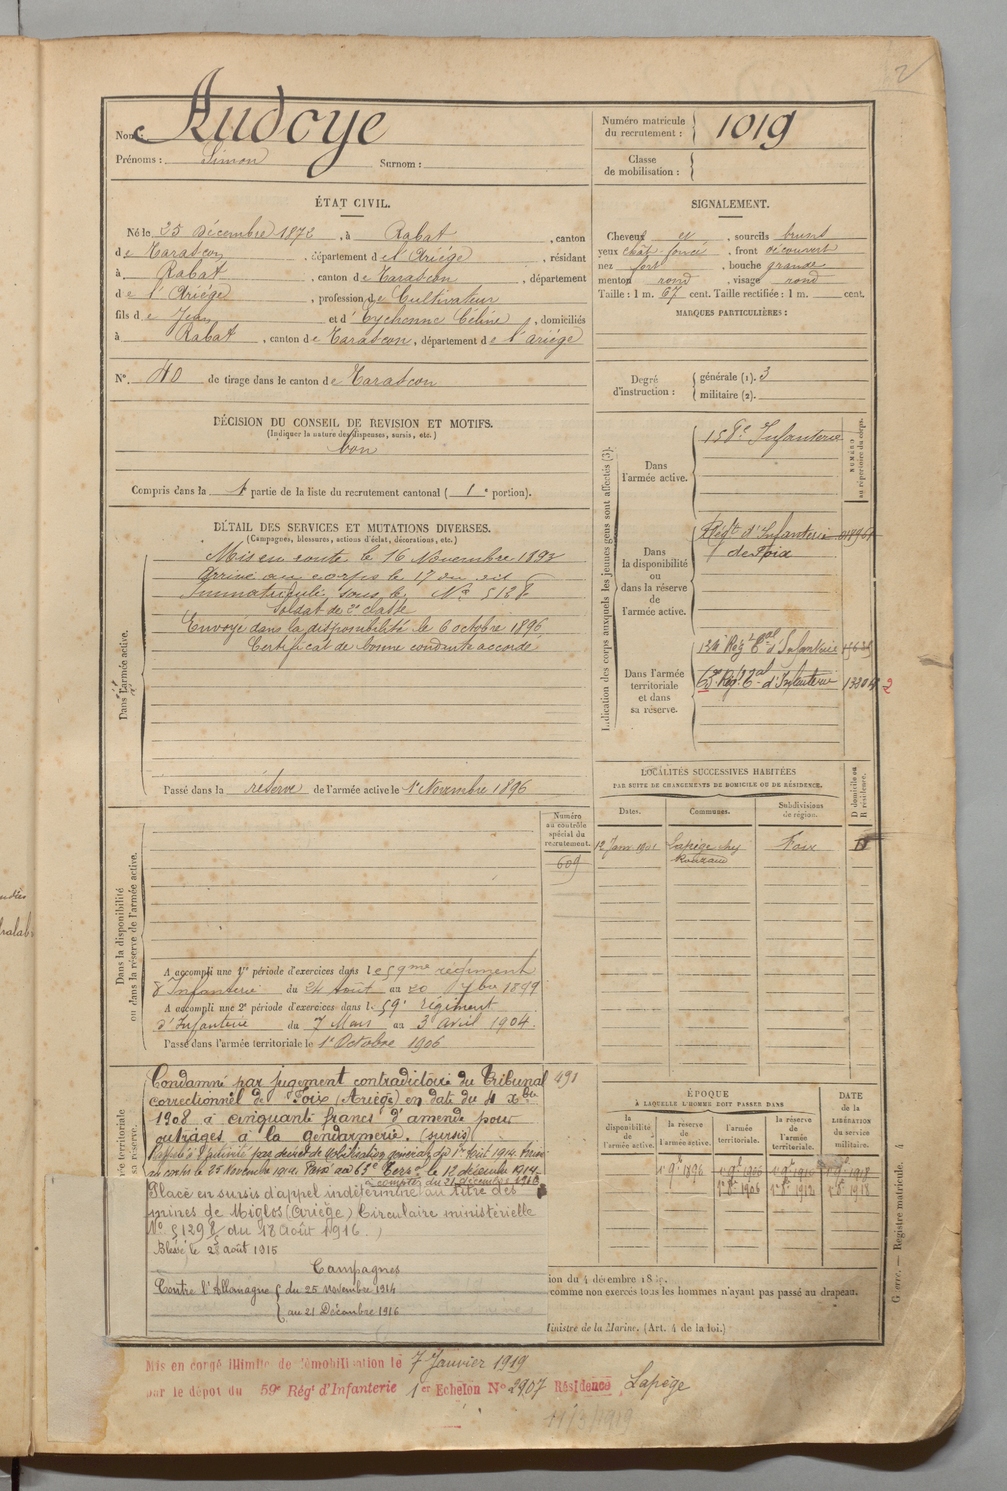 2
Nom : Audoye
Prénoms : Simon Surnom :
Numéro matricule du recrutement : 1019
Classe de mobilisation :
ÉTAT CIVIL.
Né le 25 Décembre 1872, à Rabat, canton
de Tarascon, département de l'Ariège, résidant
à Rabat, canton de Tarascon, département
de l'Ariège, profession de Cultivateur
fils de Jean et d'Eychenne Céline, domiciliés
à Rabat, canton de Tarascon, département de l'ariège
N°. 40 de tirage dans le canton de Tarascon
SIGNALEMENT.
Cheveux et, sourcils bruns
yeux chat. foncés, front découvert
nez fort, bouche grande
menton rond, visage rond
Taille : 1 m. 67 cent. Taille rectifiée : 1 m. cent.
MARQUES PARTICULIÈRES :
Degré d'instruction : générale (1). 3
militaire (2).
DÉCISION DU CONSEIL DE REVISION ET MOTIFS.
(Indiquer la nature des dispenses, sursis, etc.)
bon
Compris dans la 1e partie de la liste du recrutement cantonal ( 1e portion).
DÉTAIL DES SERVICES ET MUTATIONS DIVERSES.
(Campagnes, blessures, actions d'éclat, décorations, etc.)
Dans l'armée active.
Mis en route le 16 Novembre 1893
Arrivé au corps le 17 du dit
Immatriculé sous le N° 5128
Soldat de 2e classe
Envoyé dans la disponibilité le 6 octobre 1896
Certificat de bonne conduite accordé
Passé dans la réserve de l'armée active le 1er Novembre 1896
Indication des corps auxquels les jeunes gens sont affectés (3).
NUMÉRO au répertoire du corps.
Dans l'armée active.
158e Infanterie
Dans la disponibilité ou dans la réserve de l'armée active.
Régt d'Infanterie
de Foix
Dans l'armée territoriale et dans sa réserve.
134 Rég Tal d'Infanterie
Rég. Tal d'Infanterie
2
LOCALITÉS SUCCESSIVES HABITÉES
PAR SUITE DE CHANGEMENTS DE DOMICILE OU DE RÉSIDENCE.
Dates. Communes. Subdivisions de région. D domicile ou R résidence.
12 Janv. 1901 Lapège chez Foix
Dans la disponibilité ou dans la réserve de l'armée active.
Numéro au contrôle spécial du recrutement.
609
A accompli une 1re période d'exercices dans le 59me régiment
d'Infanterie du 24 Août au 20 7bre 1899
A accompli une 2e période d'exercices dans le 59e régiment
d'Infanterie du 7 Mars au 3 avril 1904.
Passé dans l'armée territoriale le 1er Octobre 1906
491
Condamné par jugement contradictoire du Tribunal
correctionnel de Foix (Ariège) en date du 4 Xbre
1908 à cinquante francs d'amende pour
outrages à la gendarmerie. (sursis)
Rappelé à l'activité par décret de mobilisation générale du 1er Août 1914. Arrivé
au corps le 25 Novembre 1914. Passé au 63e Terr. le 12 décembre 1914.
à compter du 21 décembre 1916
Placé en sursis d'appel indéterminé au titre des
mines de Miglos (Ariège) Circulaire ministérielle
du 18 Août 1916
Blessé le 25 août 1915
Campagnes
Contre l'Allemagne du 25 novembre 1914
au 21 Décembre 1916
ÉPOQUE
À LAQUELLE L'HOMME DOIT PASSER DANS
la disponibilité de l'armée active.
la réserve de l'armée active.
l'armée territoriale.
la réserve de l'armée territoriale.
DATE de la LIBÉRATION du service militaire.
1er 9bre 1896
1er 8bre 1906 1er 8bre 1912 1er 8bre 1918
ion du 4 décembre
comme non exercés tous les hommes n'ayant pas passé au drapeau.
Ministre de la Marine. (Art. 4 de la loi.)
Registre matricule. 4
Mis en congé illimité de démobilisation le 7 Janvier 1919
par le dépot du 59e Régt d'Infanterie 1er Echelon N° 2907 Résidence Lapège
11/3/1919